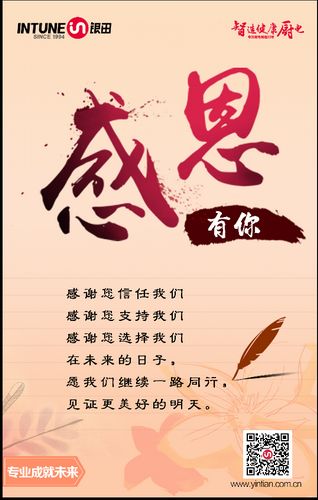 INTUNE 银田
SINCE 1994
智造健康厨电
感恩
有你
感谢您信任我们
感谢您支持我们
感谢您选择我们
在未来的日子。
愿我们继续一路同行。
见证更美好的明天。
专业成就未来
www.yintian.com.cn